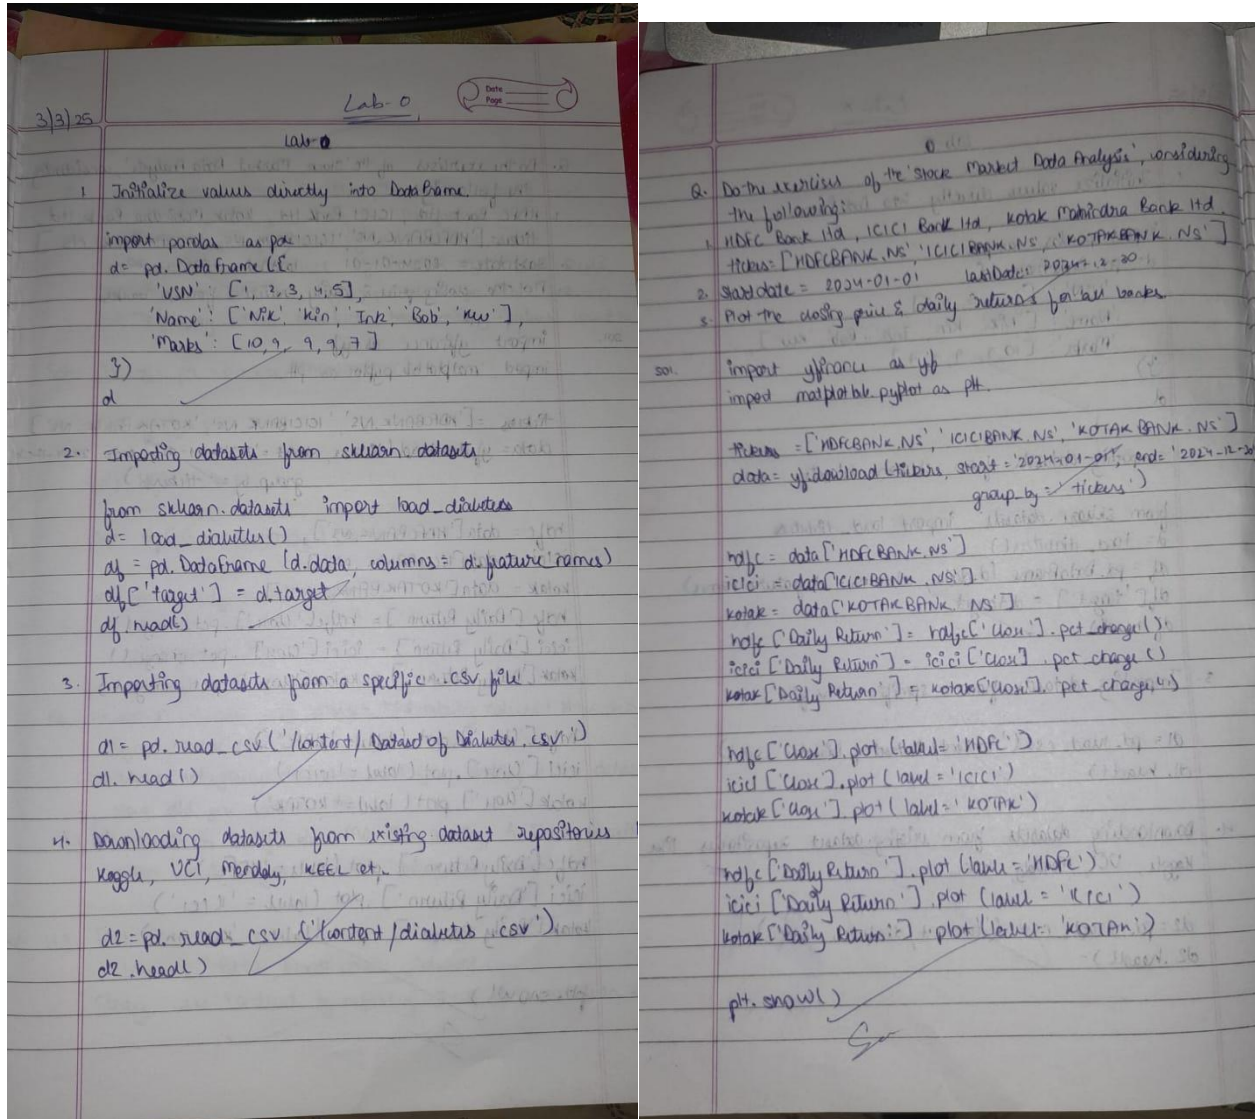 3/3/25
Lab-0
Date
Page
Lab-0
1 Initialize values directly into DataFrame.
import pandas as pd
d= pd. DataFrame ({
'USN' [1, 2, 3, 4, 5],
'Name': ['Nik' 'Kin', 'Ink', 'Bob',
'Marks': [10, 9, 9, 9, 7]
})
d
2. Importing datasets from sklearn datasets
from sklearn.datasets import load_diabetes
d= load_diabetes()
df = pd. DataFrame (d.data, columns= d.feature names)
df['target'] = d.target
df.head()
3. Importing datasets from a specific .CSV file
d1= pd. read_csv('/content/Dataset of Diabetes .csv')
d1. head()
4. Downloading datasets from existing dataset repositories
Kaggle, UCI, Mendely, KEEL et.
d2=pd. read_csv ('/content/diabetes csv')
d2.head()
Q. Do the exercises of the 'Stock Market Data Analysis', considering
the following:
1. HDFC Bank ltd, ICICI Bank ltd, Kotak Mahindra Bank ltd.
tickers= ['HDFCBANK.NS' 'ICICIBANK.NS', 'KOTAKBANK.NS']
2. Start date = 2024-01-01 last Date: 2024-12-30
3. Plot the closing price & daily returns for all banks.
Sol. import yfinance as yf
import matplotlib.pyplot as plt.
tickers =['HDFCBANK.NS', 'ICICIBANK.NS', 'KOTAK BANK.NS']
data= yf.download (tickers, start='2024-01-01', end= '2024-12-30
group_by = 'tickers')
hdfc = data['HDFCBANK.NS']
icici = data['ICICIBANK.NS'].
kotak = data['KOTAKBANK. NS']
hdfc ['Daily Return'] = hdfc['Close'] .pct_change()
icici ['Daily Return'] = icici ['Close'] .pct_change ()
kotak ['Daily Return'] = kotak['Close'] .pct_change()
hdfc ['Close'].plot (label= 'HDFC')
icici ['Close'].plot (label = 'ICICI')
kotak ['Close'].plot (label= 'KOTAK')
hdfc ['Daily Return'] .plot (label = 'HDFC')
icici ['Daily Return'] .plot (label = 'ICICI')
kotak['Daily Return'] plot (label= 'KOTAK')
plt. show()